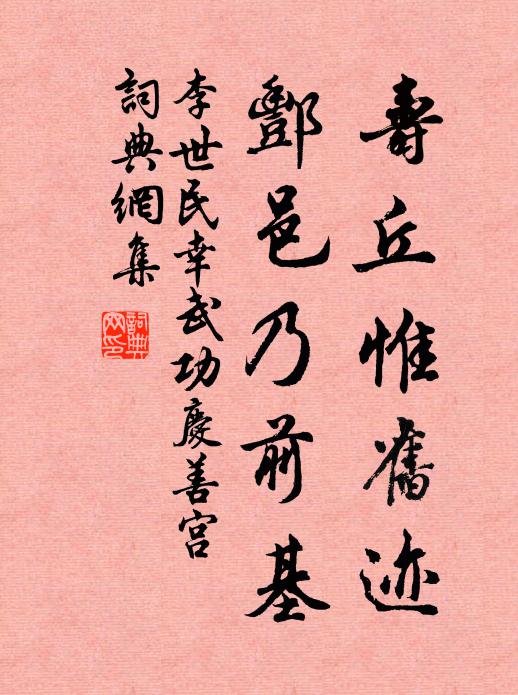 壽丘惟舊迹
酆邑乃前基
李世民幸武功慶善宮
詞典網集
詞典
网印